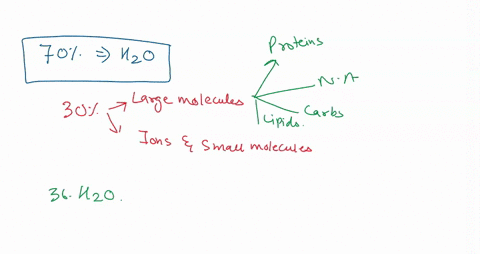 70% ⇒ H2O
Proteins
N.A
Carbs
Lipids.
30% → Large molecules
Ions & Small molecules
36. H2O.